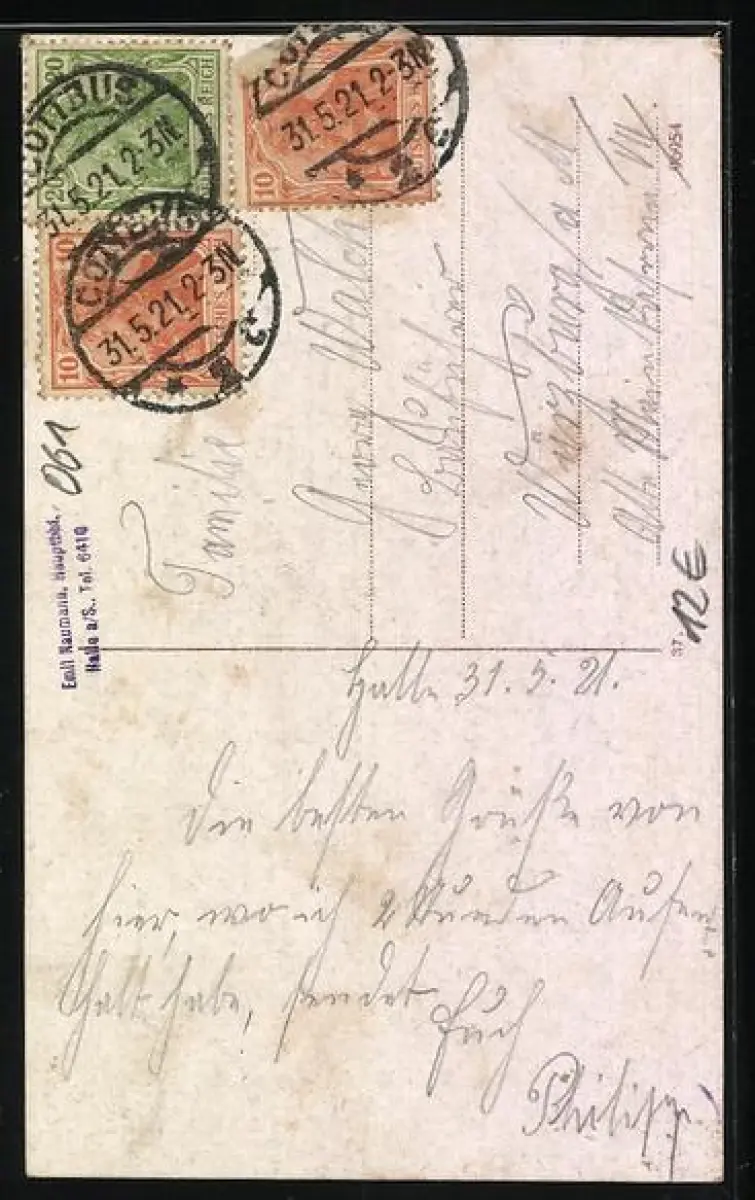 20 20
REICH
10
10 10
COTTBUS
31.5.21. 2-3N
COTTBUS
31.5.21. 2-3N
COTTBUS
31.5.21. 2-3N
061
Emil Naumann, Hauptbhf.
Halle a/S., Tel. 6410
Familie
Georg Walch
Lokführer
Würzburg a M
96954
37.
12€
Halle 31. 5. 21.
Die besten Grüße von
hier, wo ich 2 Stunden Aufent
halt habe, sendet
Euch
Philipp.